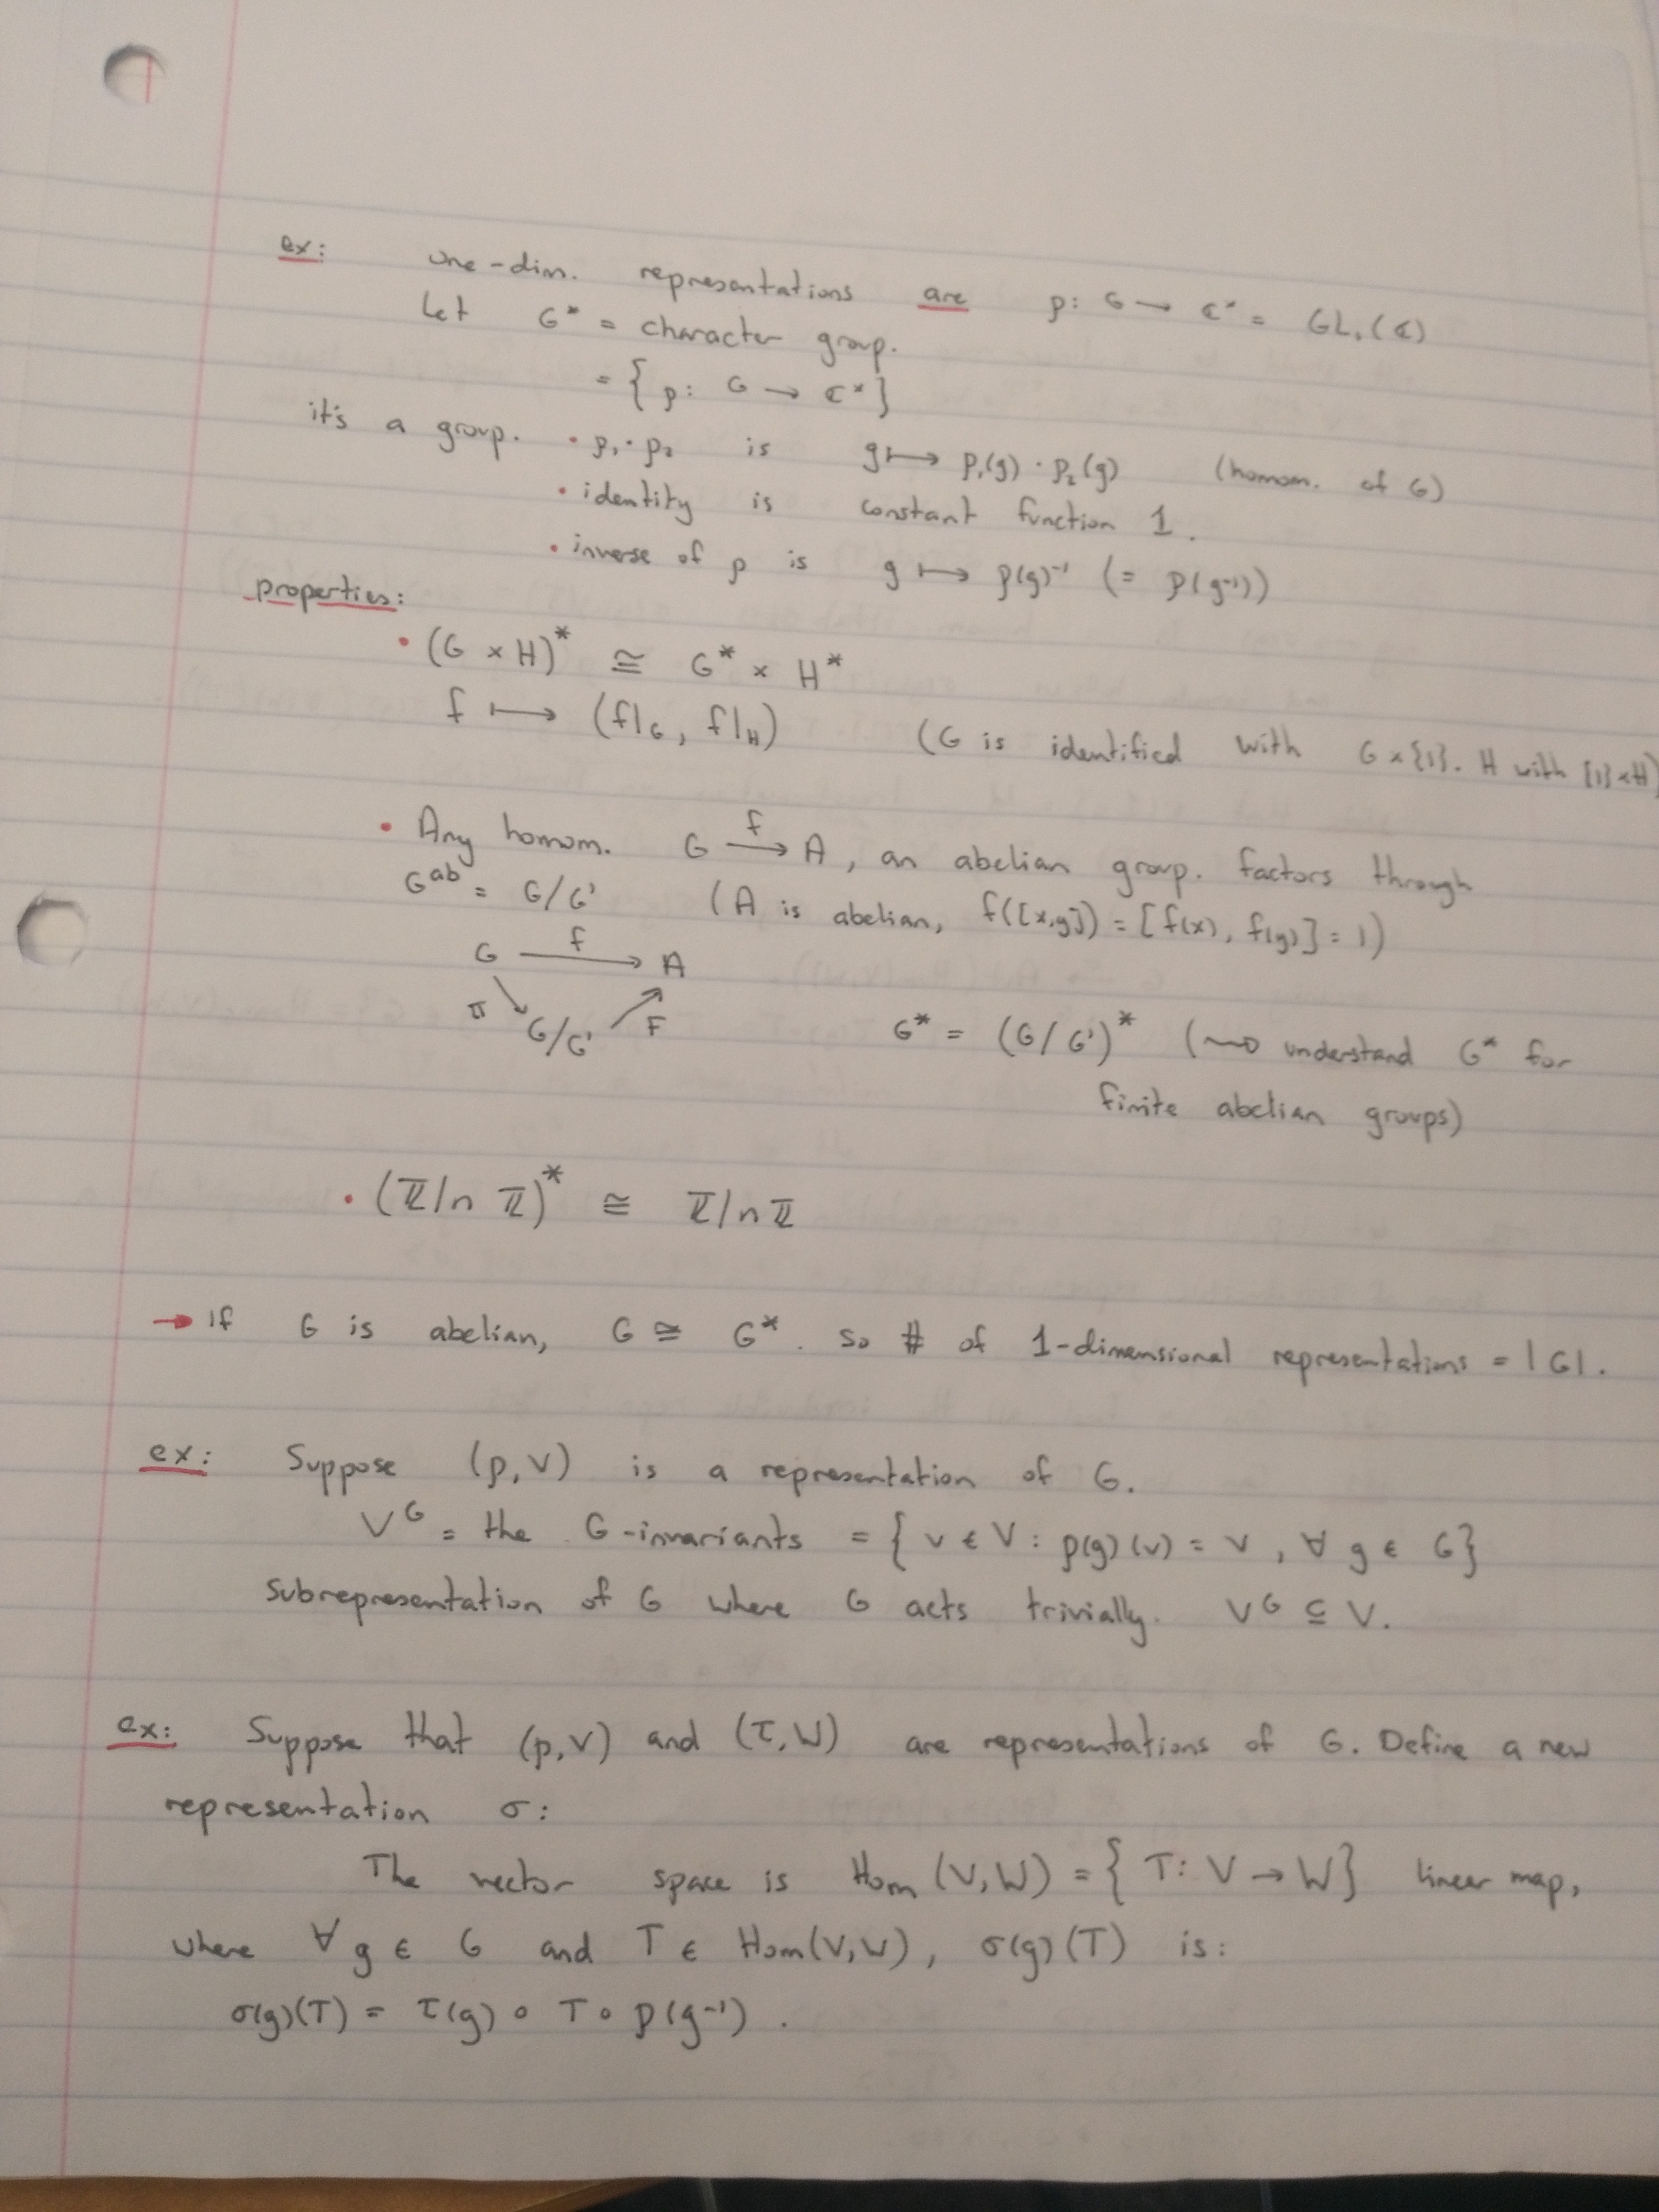 ex: one-dim. representations are ρ: G → ℂ* = GL₁(ℂ)
Let G* = character group.
= { ρ: G → ℂ* }
it's a group. • ρ₁·ρ₂ is g ↦ ρ₁(g)·ρ₂(g) (homom. of G)
• identity is constant function 1.
• inverse of ρ is g ↦ ρ(g)⁻¹ (= ρ(g⁻¹))
properties:
• (G × H)* ≅ G* × H*
f ↦ (f|_G, f|_H) (G is identified with G×{1}. H with {1}×H)
• Any homom. G →^f A, an abelian group. factors through
G^ab = G/G' (A is abelian, f([x,y]) = [f(x), f(y)] = 1)
G →^f A
π ↘ G/G' ↗ F G* = (G/G')* (⇝ understand G* for
finite abelian groups)
• (ℤ/nℤ)* ≅ ℤ/nℤ
→ If G is abelian, G ≅ G*. so # of 1-dimensional representations = |G|.
ex: Suppose (ρ,V) is a representation of G.
V^G = the G-invariants = { v ∈ V : ρ(g)(v) = v, ∀ g ∈ G}
Subrepresentation of G where G acts trivially. V^G ⊆ V.
ex: Suppose that (ρ,V) and (τ,W) are representations of G. Define a new
representation σ:
The vector space is Hom (V,W) = { T: V → W} linear map,
where ∀ g ∈ G and T ∈ Hom(V,W), σ(g)(T) is:
σ(g)(T) = τ(g) ∘ T ∘ ρ(g⁻¹).